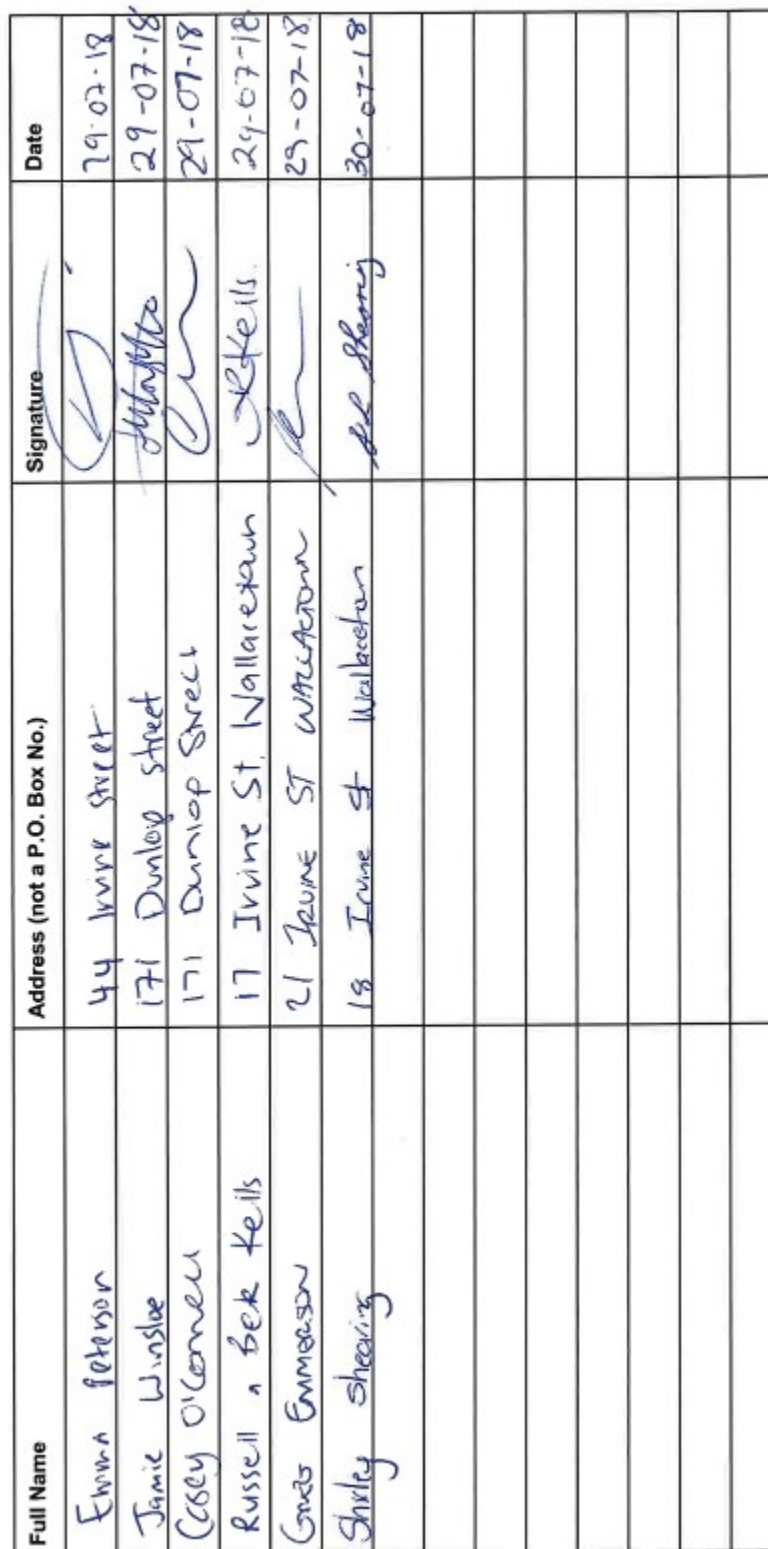 Full Name Address (not a P.O. Box No.) Signature Date
Emma Peterson 44 Irvine Street 29-07-18
Jamie Winsloe 171 Dunlop street 29-07-18
Casey O'Connell 171 Dunlop Street 29-07-18
Russell n Bek Keils 17 Irvine St. Wallacetown Keils. 29-07-18
21 IRVINE ST WALLACETOWN 29-07-18
Shirley Shearing 18 Irvine St Wallacetown Shearing 30-07-18